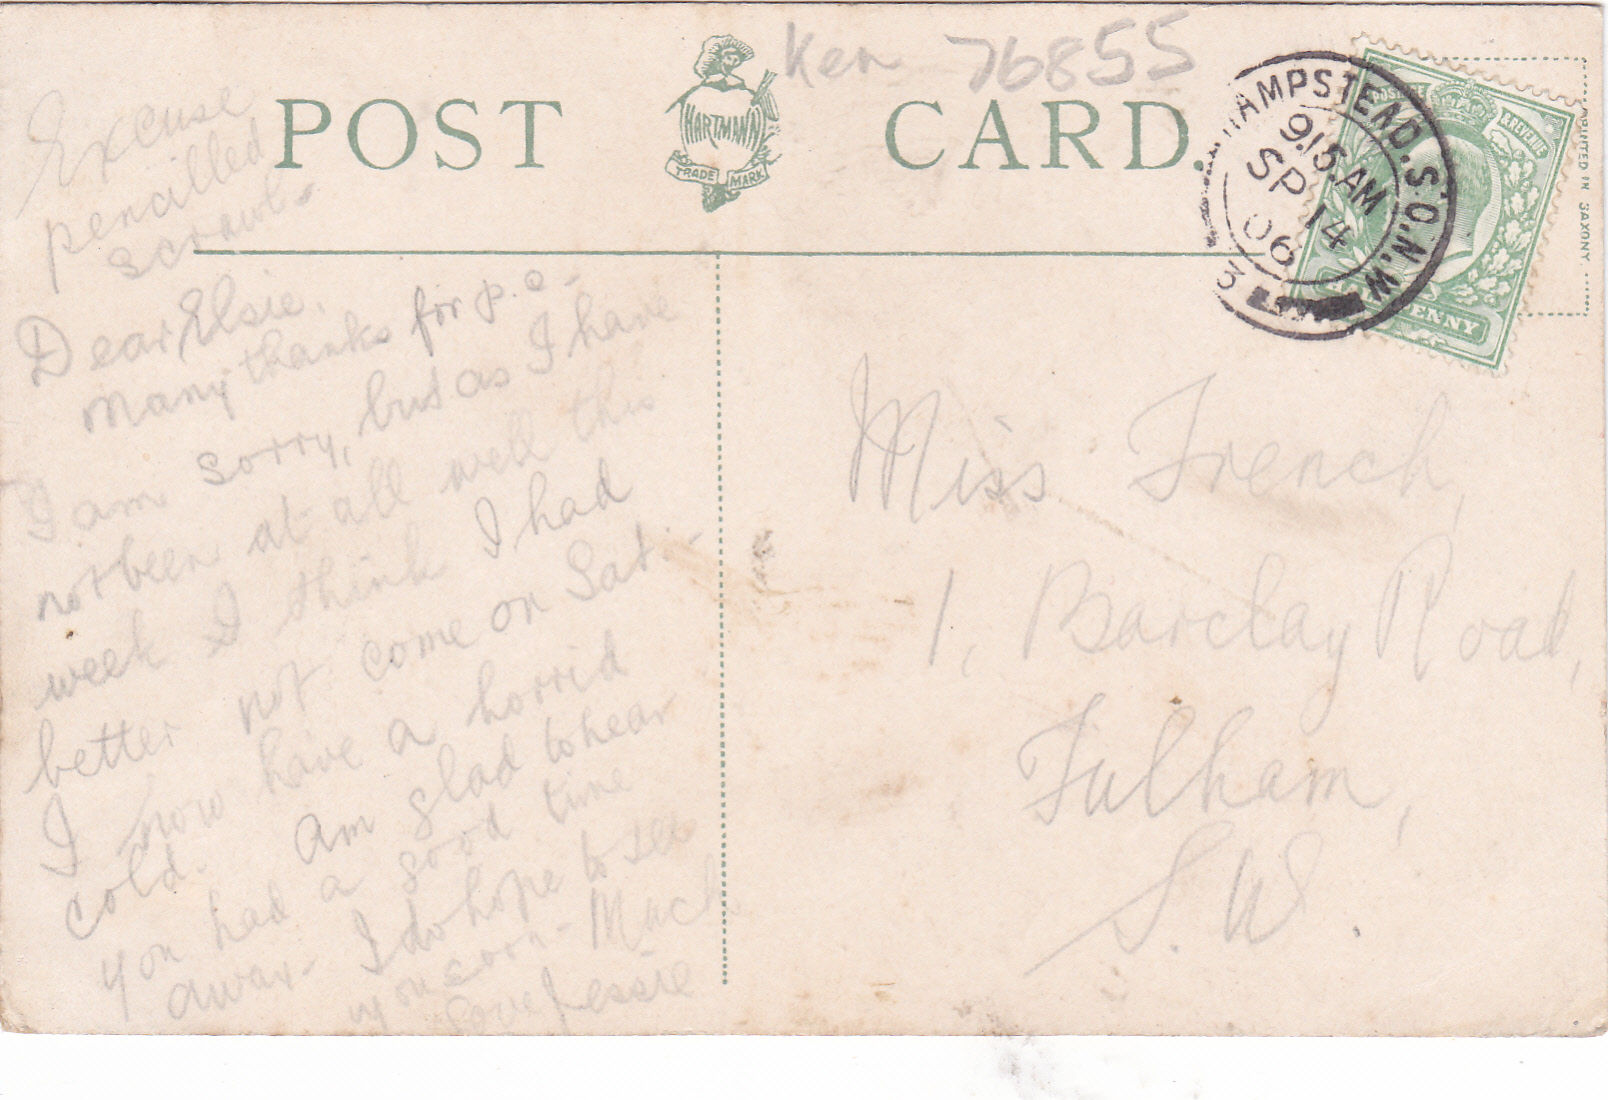 Ken 76855
POST CARD.
HARTMANN
TRADE MARK
HAMPSTEAD. S.O.N.W
9.15.AM
SP 14
06
3
POSTAGE & REVENUE
PENNY
PRINTED IN SAXONY.
Excuse
pencilled
scrawl.
Dear Elsie.
Many thanks for p.c-
I am sorry, but as I have
not been at all well this
week I think I had
better not come on Sat.-
I now have a horrid
cold. Am glad to hear
you had a good time
away- I do hope to see
you soon- Much
love Jessie
Miss French,
1, Barclay Road,
Fulham,
S.W.